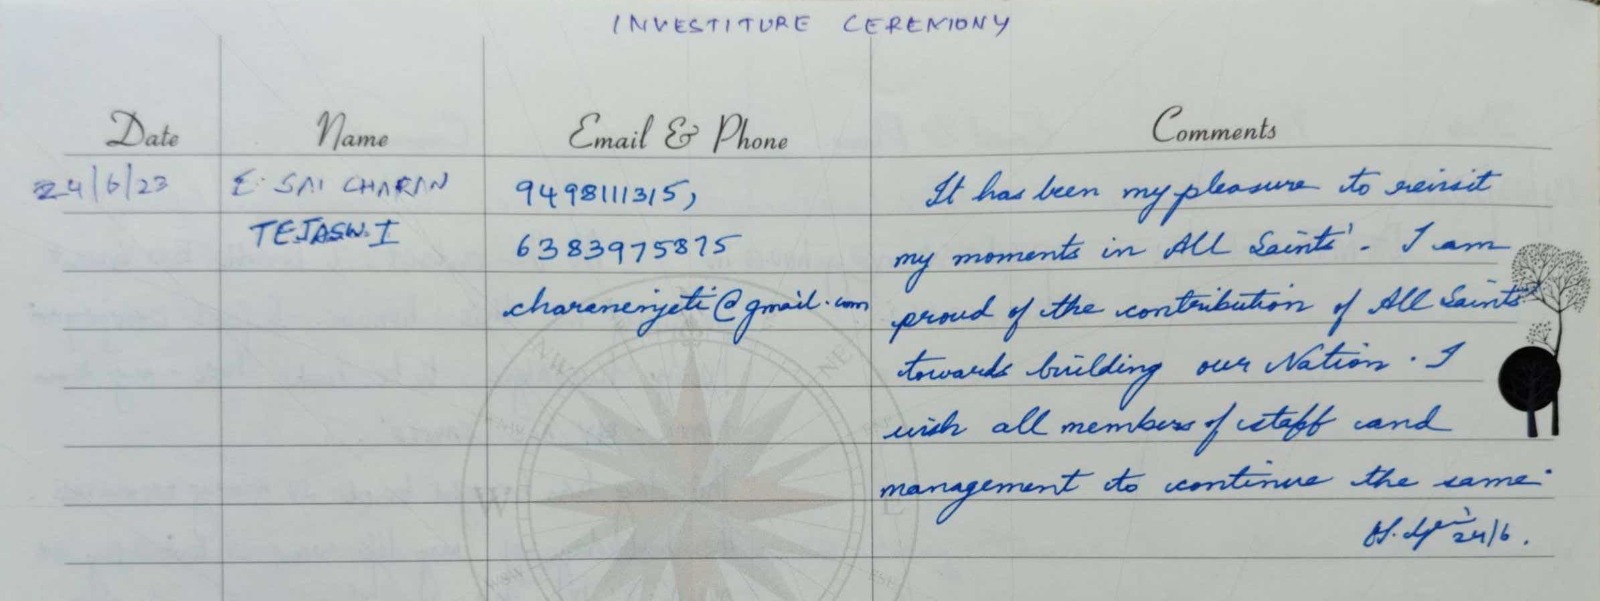 INVESTITURE CEREMONY
Date Name Email & Phone Comments
24/6/23 E. SAI CHARAN 9498111315, It has been my pleasure to revisit
TEJASWI 6383975875 my moments in All Saints'. I am
charanenjeti@gmail.com proud of the contribution of All Saints'
towards building our Nation. I
wish all members of staff and
management to continue the same.
24/6.
NW NE
W E